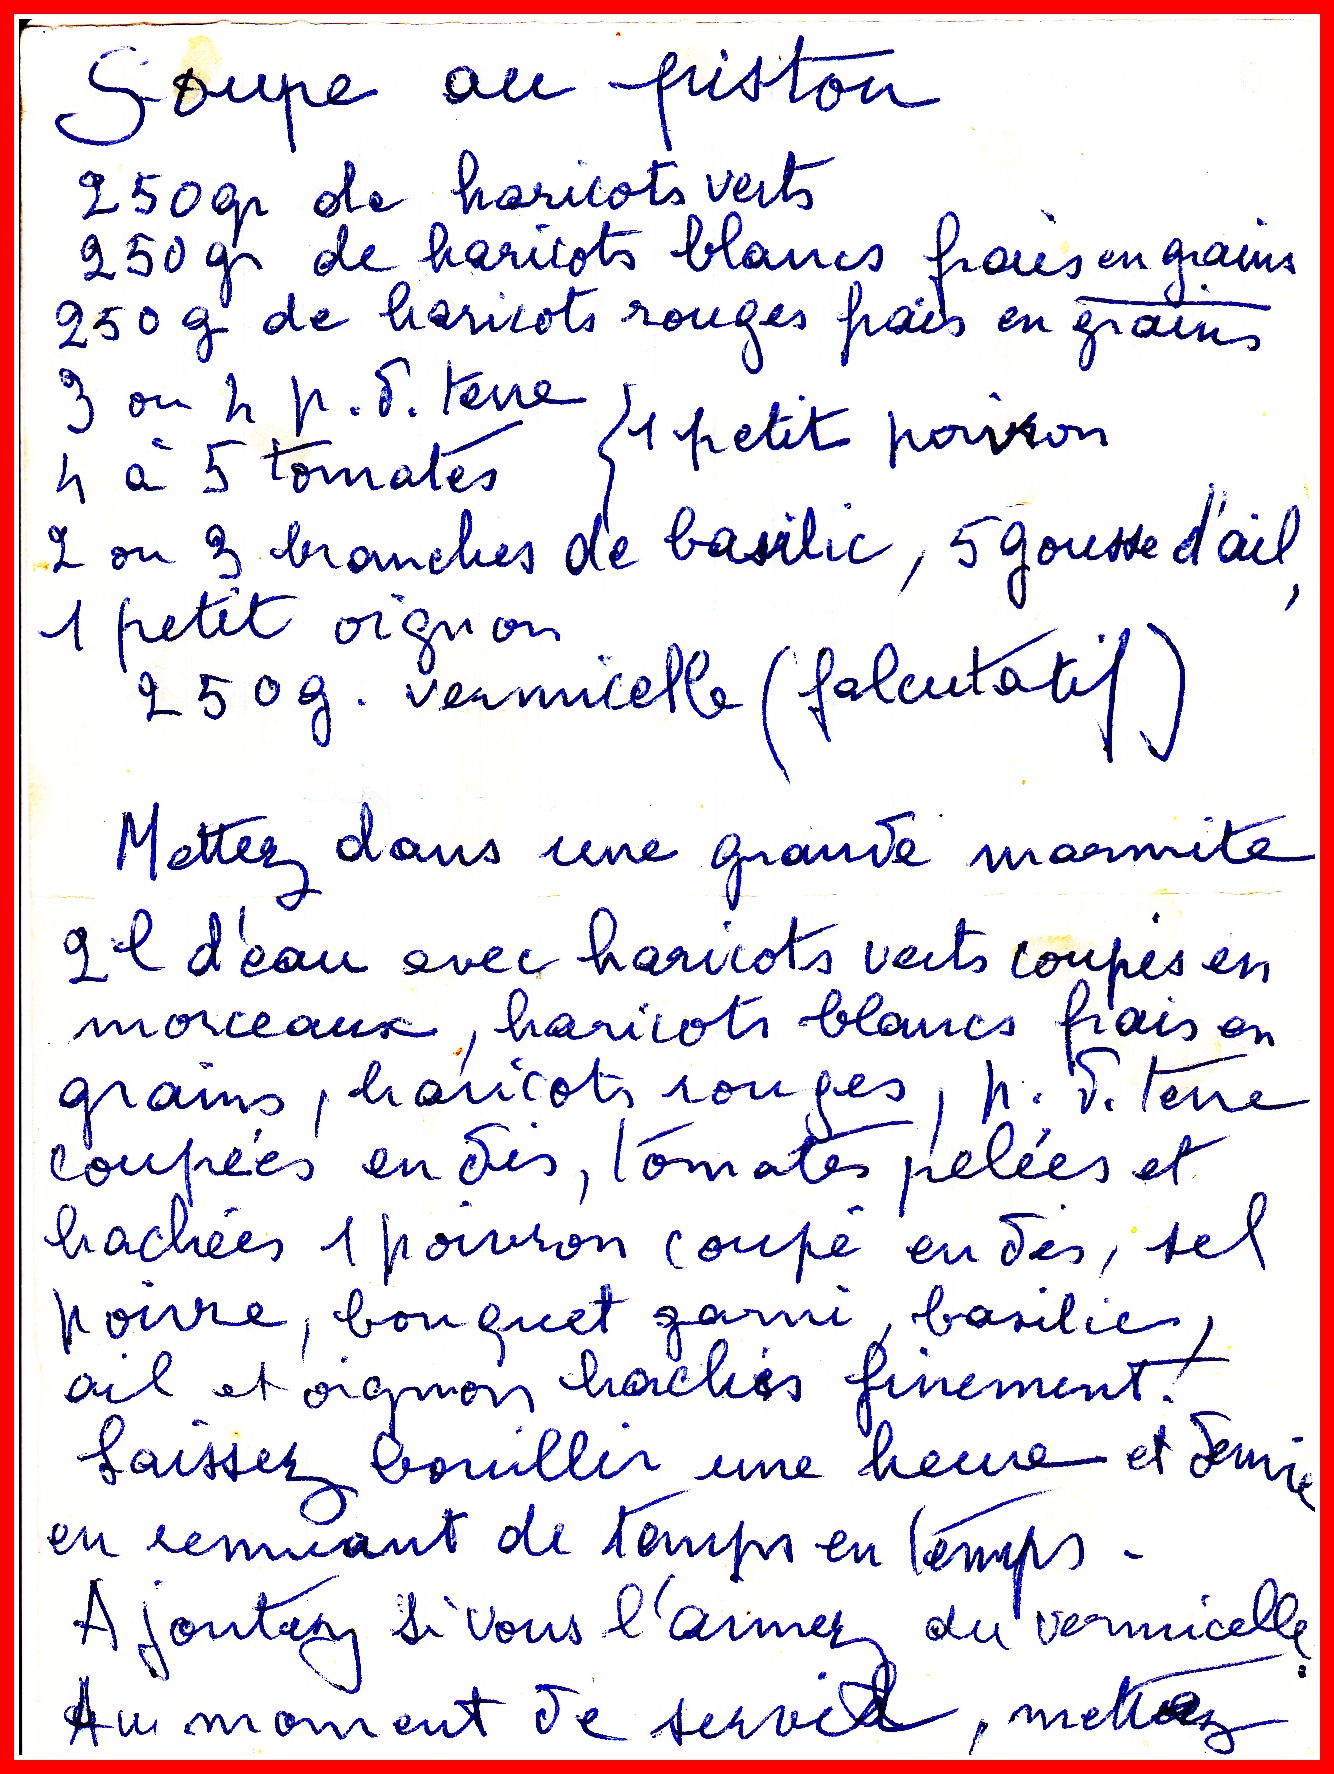 Soupe au piston
250gr de haricots verts
250gr de haricots blancs frais en grains
250g de haricots rouges frais en grains
3 ou 4 p. d. terre
4 à 5 tomates } 1 petit poivron
2 ou 3 branches de basilic, 5 gousse d'ail,
1 petit oignon
250g. vermicelle (falcutatif)
Mettez dans une grande marmite
2 l d'eau avec haricots verts coupés en
morceaux, haricots blancs frais en
grains, haricots rouges, p. d. terre
coupées en dés, tomates pelées et
hachées 1 poivron coupé en dés, sel
poivre, bouquet garni, basilic,
ail et oignon hachés finement.
Laissez bouillir une heure et demie
en remuant de temps en temps.
Ajoutez si vous l'aimez du vermicelle.
Au moment de servir, mettez